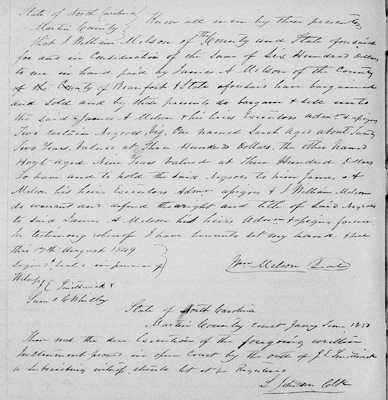 State of North Carolina
Martin County
Know all men by these presents
that I William Melson of the County and State aforesaid
for and in Consideration of the Sum of Six Hundred Dollars
to me in hand paid by James A Melson of the County
of the County of Beaufort & State aforesaid have bargained
and Sold and by these presents do bargain & sell unto
the said James A Melson & his heirs Executors Admrs & assigns
Two certain Negroes One named Sarah Aged about
Two Years Valued at Three Hundred Dollars. The other named
Hoyt aged Nine Years Valued at Three Hundred Dollars
To have and to hold the said Negroes to him James A
Melson his heirs Executors Admrs assigns & I William Melson
do warrant and defend the right and title of Said Negroes
to said James A Melson his heirs Admrs & assigns forever
In testimony whereof I have hereunto set my hand & seal
this 17th August 1849
Signd Seald in presence of
Wm Melson Seal
Witness
J E
Saml C Whitley
State of North Carolina
Martin County court Jany Term 1850
Then was the due Execution of the foregoing written
Instrument proved in open Court by the oath of J E
a Subscribing witness. Ordered let it be Registered
L Johnson Clk